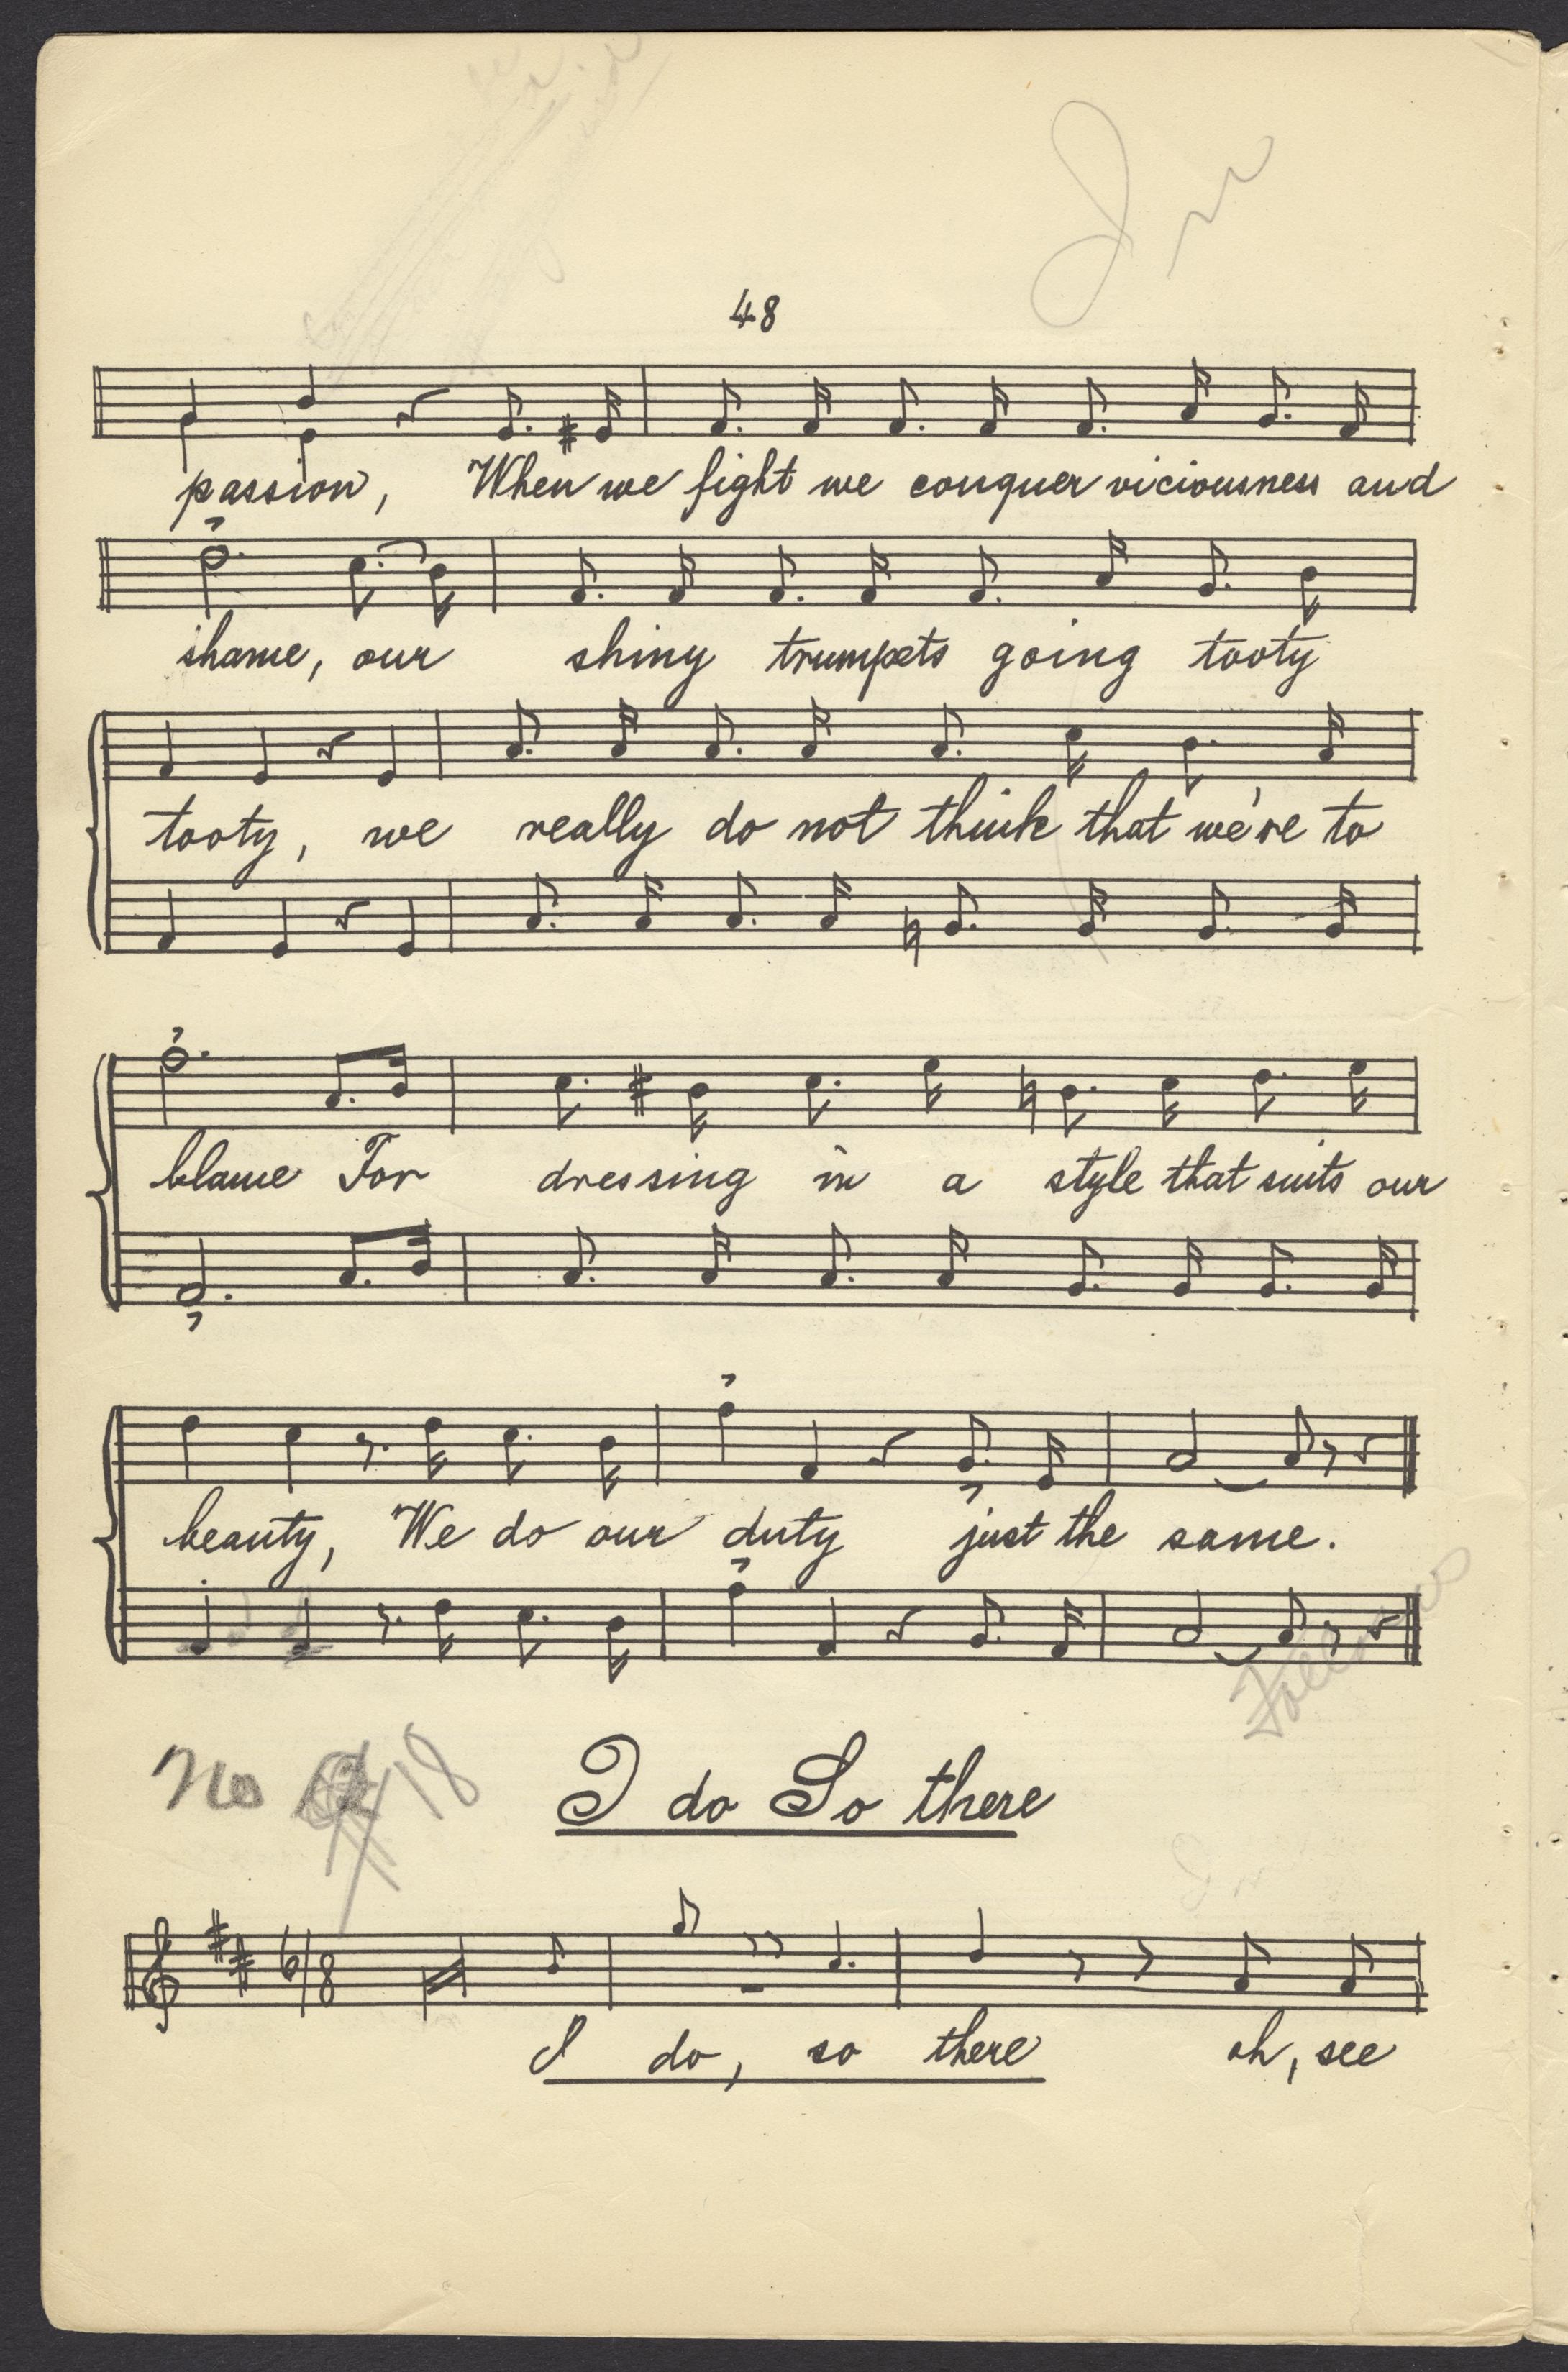 48
passion, When we fight we conquer viciousness and
shame, our shiny trumpets going tooty
tooty, we really do not think that we're to
blame For dressing in a style that suits our
beauty, We do our duty just the same.
No 18 I do So there
6/8
I do, so there oh, see